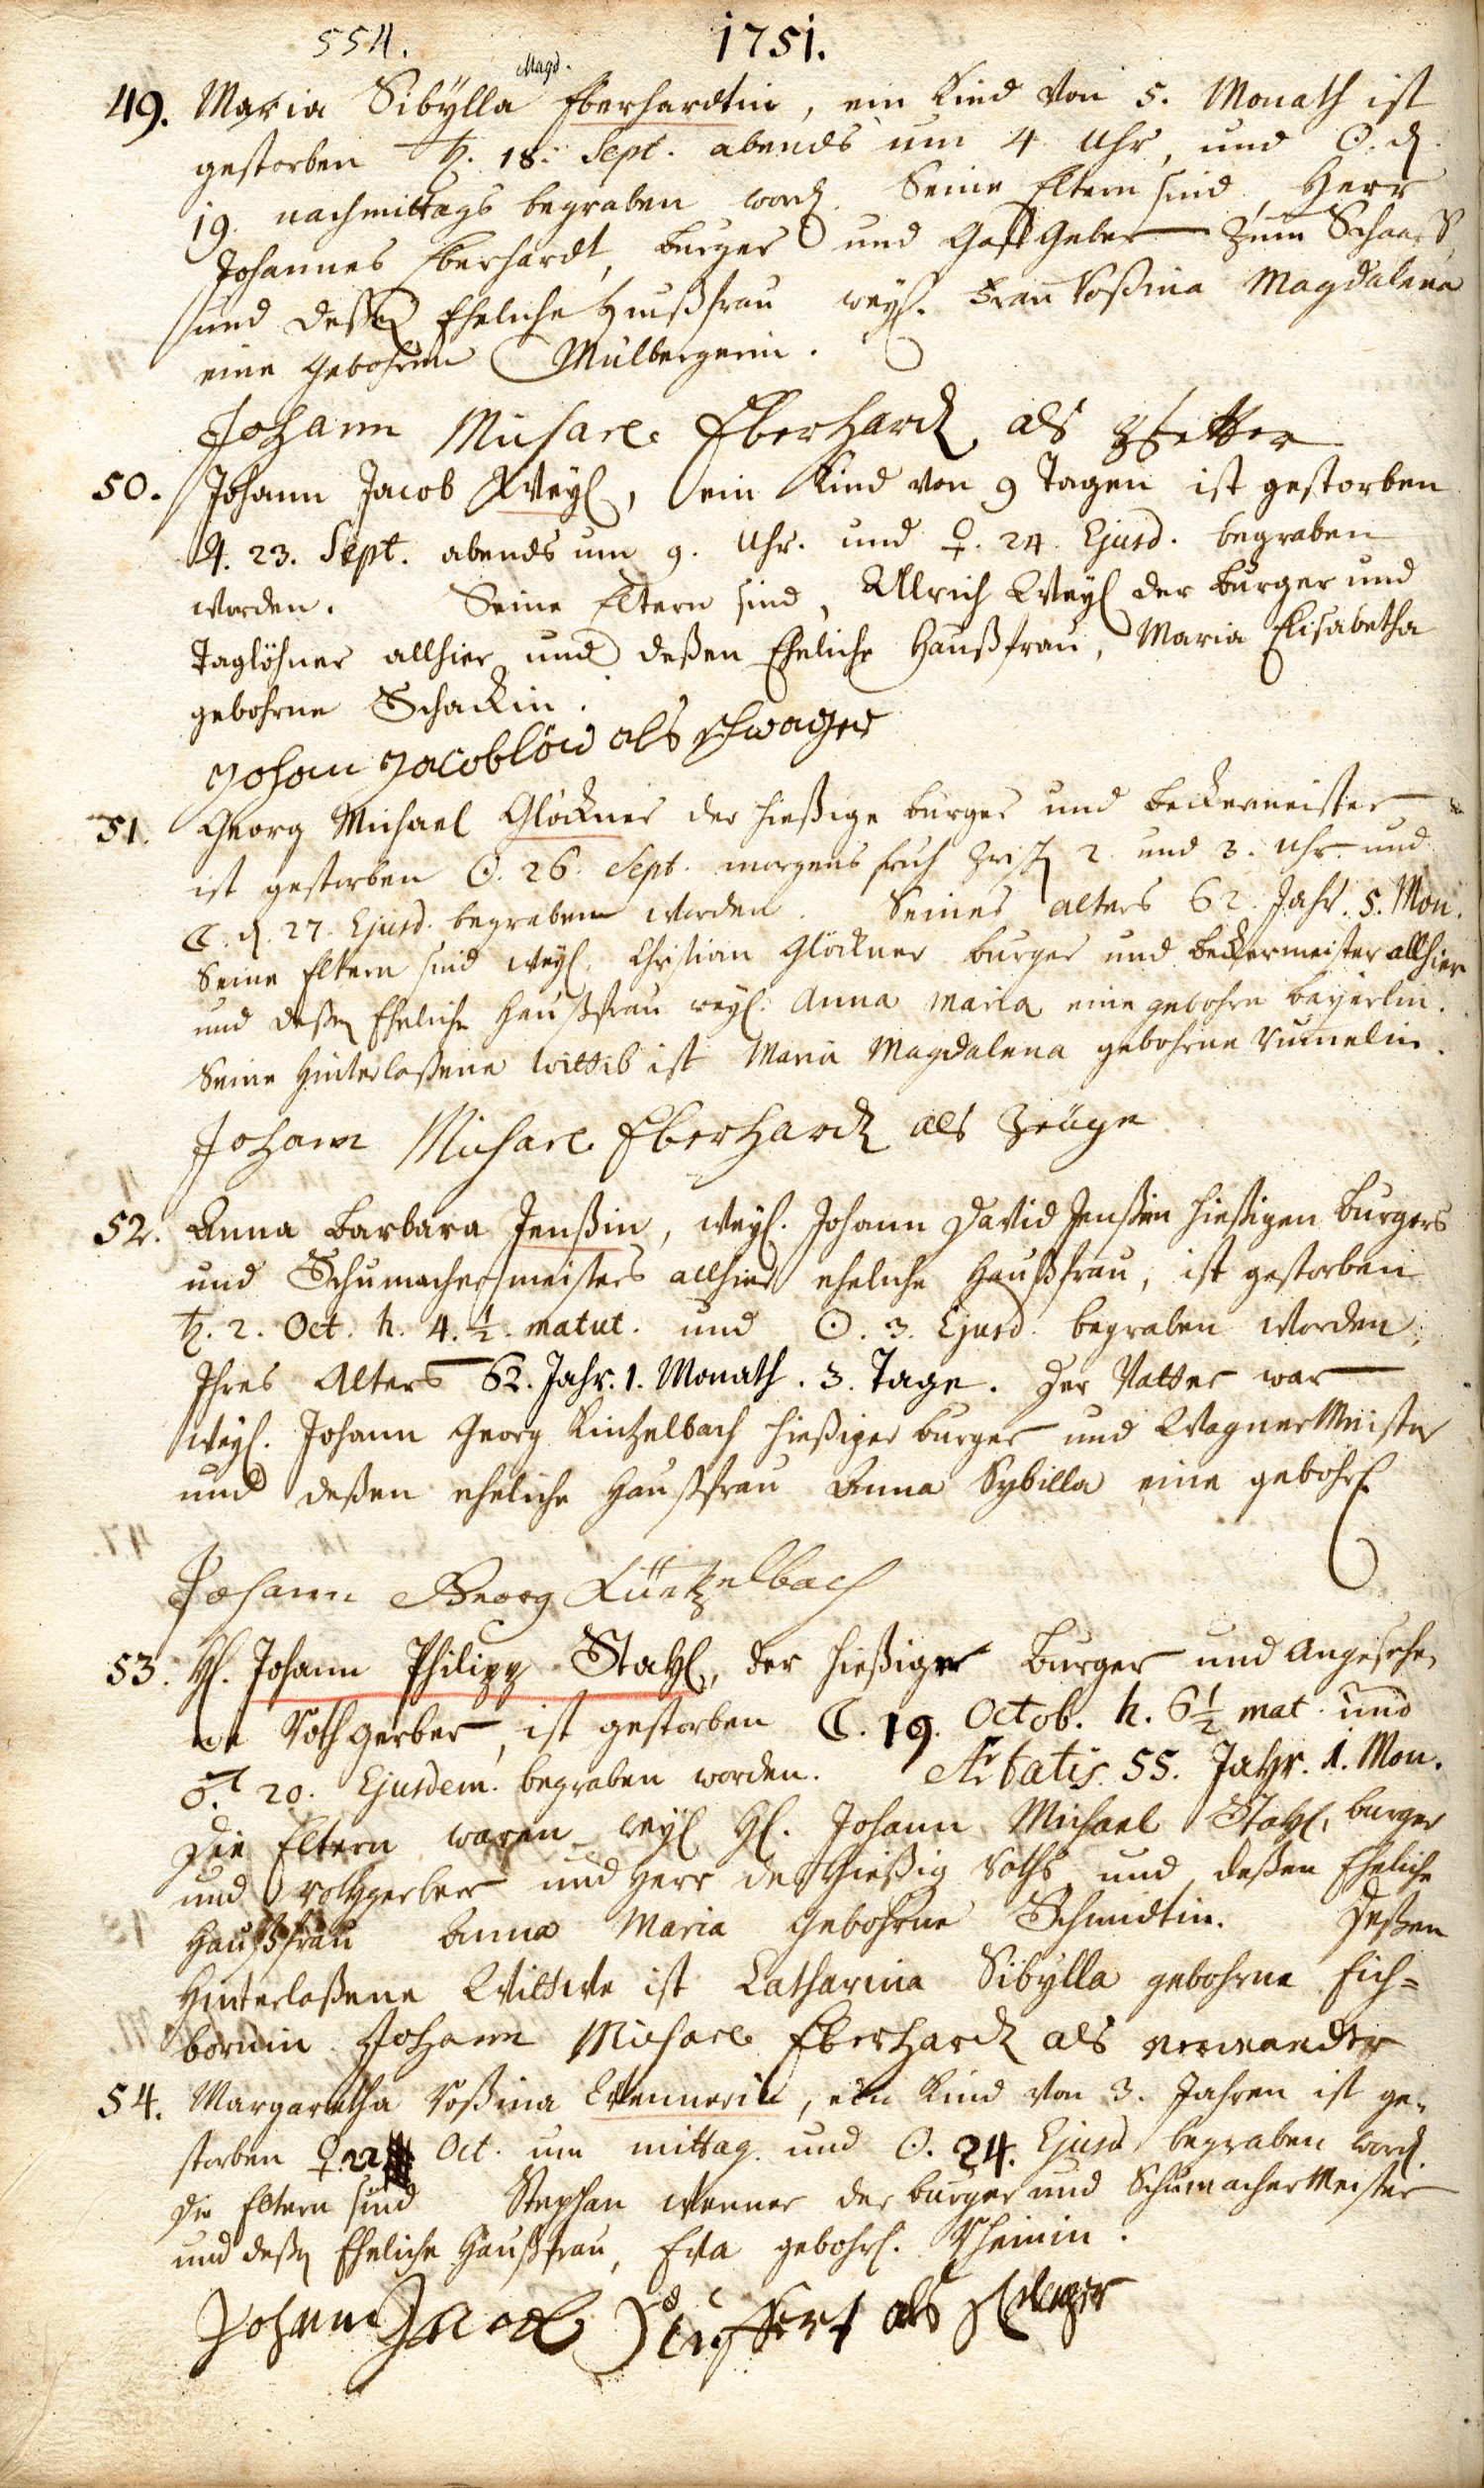 554. 1751.
Magd.
49. Maria Sibÿlla Eberhardtin, ein Kind von 5. Monath ist
gestorben ♄. 18. Sept. abends um 4 Uhr, und ☉. d.
19. nachmittags begraben word. Seine Eltern sind, Herr
Johannes Eberhardt, Burger und Gastgeber zum
und deßen Eheliche Haußfrau weyl. Frau Roßina Magdalena
eine gebohrne Mülbergerin.
Johann Michael Eberhard als Vetter
50. Johann Jacob Weyl, ein Kind von 9 Tagen ist gestorben
♃. 23. Sept. abends um 9. Uhr. und ♀. 24. Ejusd. begraben
worden. Seine Eltern sind, Ullrich Weyl der Burger und
Taglöhner allhier und deßen Eheliche Haußfrau, Maria Elisabetha
gebohrne Schackin.
Johan Jacob als schwager
51. Georg Michael Glöckner der hießige Burger und Beckermeister
ist gestorben ☉. 26. Sept. morgens früh zwisch 2. und 3. Uhr und
☾. d. 27. Ejusd. begraben worden. Seines alters 62. Jahr. 5. Mon.
Seine Eltern sind weyl. Christian Glöckner burger und Beckermeister allhier
und deßen Eheliche Haußfrau weyl. Anna Maria eine gebohrn Beyerlin.
Seine Hinterlaßene Wittib ist Maria Magdalena gebohrne Rümelin.
Johann Michael Eberhard als Zeüge
52. Anna Barbara Jenßin, weyl. Johann David Jenßen hießigen Burgers
und Schumachermeisters allhier eheliche Haußfrau, ist gestorben
♄. 2. Oct. h. 4. ½. matut. und ☉. 3. Ejusd. begraben worden,
Ihres Alters 62. Jahr. 1. Monath. 3. Tage. Der Vatter war
weyl. Johann Georg Kintzelbach hießiger burger und WagnerMeister
und deßen eheliche Haußfrau Anna Sybilla eine gebohrl.
Johann Georg Küntzelbach
53. Hl. Johann Philipp Stahl, der hießiger Burger und Angesehe,
ne Rothgerber, ist gestorben ☾. 19. Octob. h. 6 ½ mat. und
♂. 20. Ejusdem. begraben worden. Aetatis. 55. Jahr. 1. Mon.
Die Eltern waren weyl Hl. Johann Michael Stahl, burger
und rothgerber und Herr des hießig Raths und deßen Eheliche
Haußfrau Anna Maria gebohrne Schmidtin. Deßen
Hinterlaßene Wittwe ist Catharina Sibylla gebohrne Eich=
bornin Johann Michael Eberhard als verwander
54. Margaretha Roßina Wennerin, ein Kind von 3. Jahren ist ge,
storben ♀. 22 Oct. um mittag. und ☉. 24. Ejusd begraben word.
Die Eltern sind Stephan Wenner der burger und SchumacherMeister
und deßen Eheliche Haußfrau, Eva gebohrl. Rheinin.
Johann Jacob als